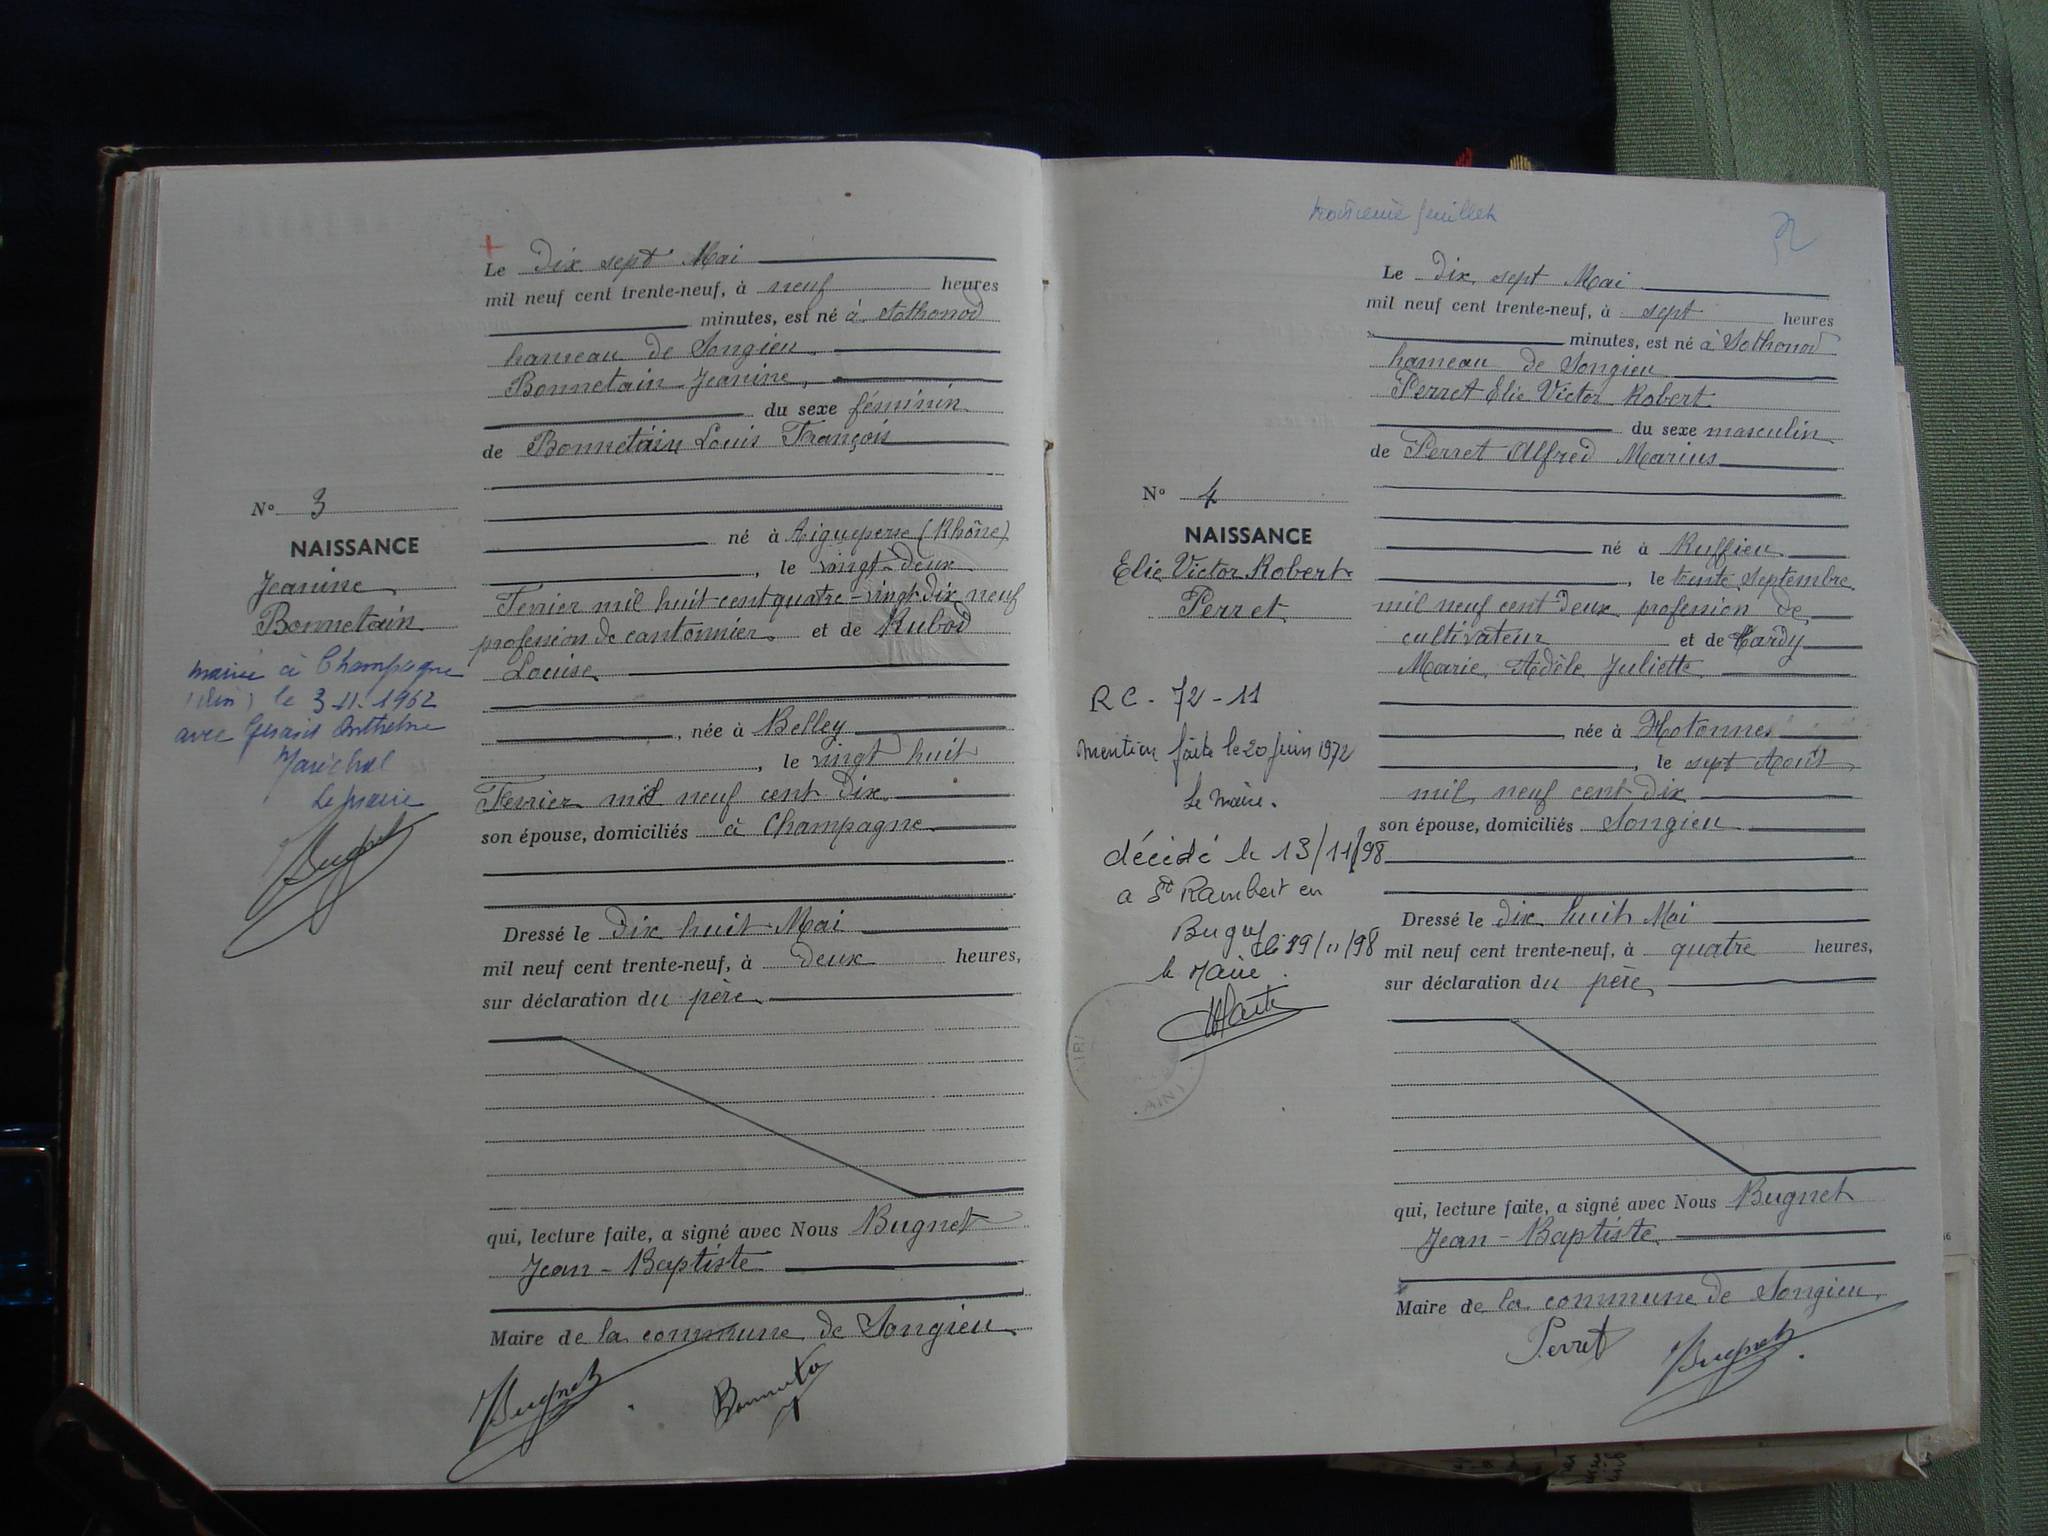 Le dix sept Mai
mil neuf cent trente-neuf, à neuf heures
minutes, est né à Sothonod
hameau de Songieu
Bonnetain Jeanine,
du sexe féminin
de Bonnetain Louis François
né à Aigueperse (Rhône)
, le vingt-deux
Fevrier mil huit cent quatre-vingt dix neuf
profession de cantonnier et de Rubod
Louise
, née à Belley
, le vingt huit
Fevrier mil neuf cent dix
son épouse, domiciliés à Champagne
Dressé le dix huit Mai
mil neuf cent trente-neuf, à deux heures,
sur déclaration du père
qui, lecture faite, a signé avec Nous Bugnet
Jean-Baptiste
Maire de la commune de Songieu
Bugnet
No 3
NAISSANCE
Jeanine
Bonnetain
mariée à Champagne
(Ain) le 3.11.1962
avec
Maréchal
Le Maire
Bugnet
troisième feuillet
Le dix sept Mai
mil neuf cent trente-neuf, à sept heures
minutes, est né à Sothonod
hameau de Songieu
Perret Elie Victor Robert
du sexe masculin
de Perret Alfred Marius
né à Ruffieu
, le trente septembre
mil neuf cent deux profession de
cultivateur et de Hardy
Marie Adèle Juliette
, née à Hotonnes
, le sept Août
mil neuf cent dix
son épouse, domiciliés Songieu
Dressé le dix huit Mai
mil neuf cent trente-neuf, à quatre heures,
sur déclaration du père
qui, lecture faite, a signé avec Nous Bugnet
Jean-Baptiste
Maire de la commune de Songieu
Perret Bugnet
No 4
NAISSANCE
Elie Victor Robert
Perret
RC - 72 - 11
mention faite le 20 juin 1972
Le Maire.
décédé le 13/11/98
a St Rambert en
Bugey
le Maire
AIN